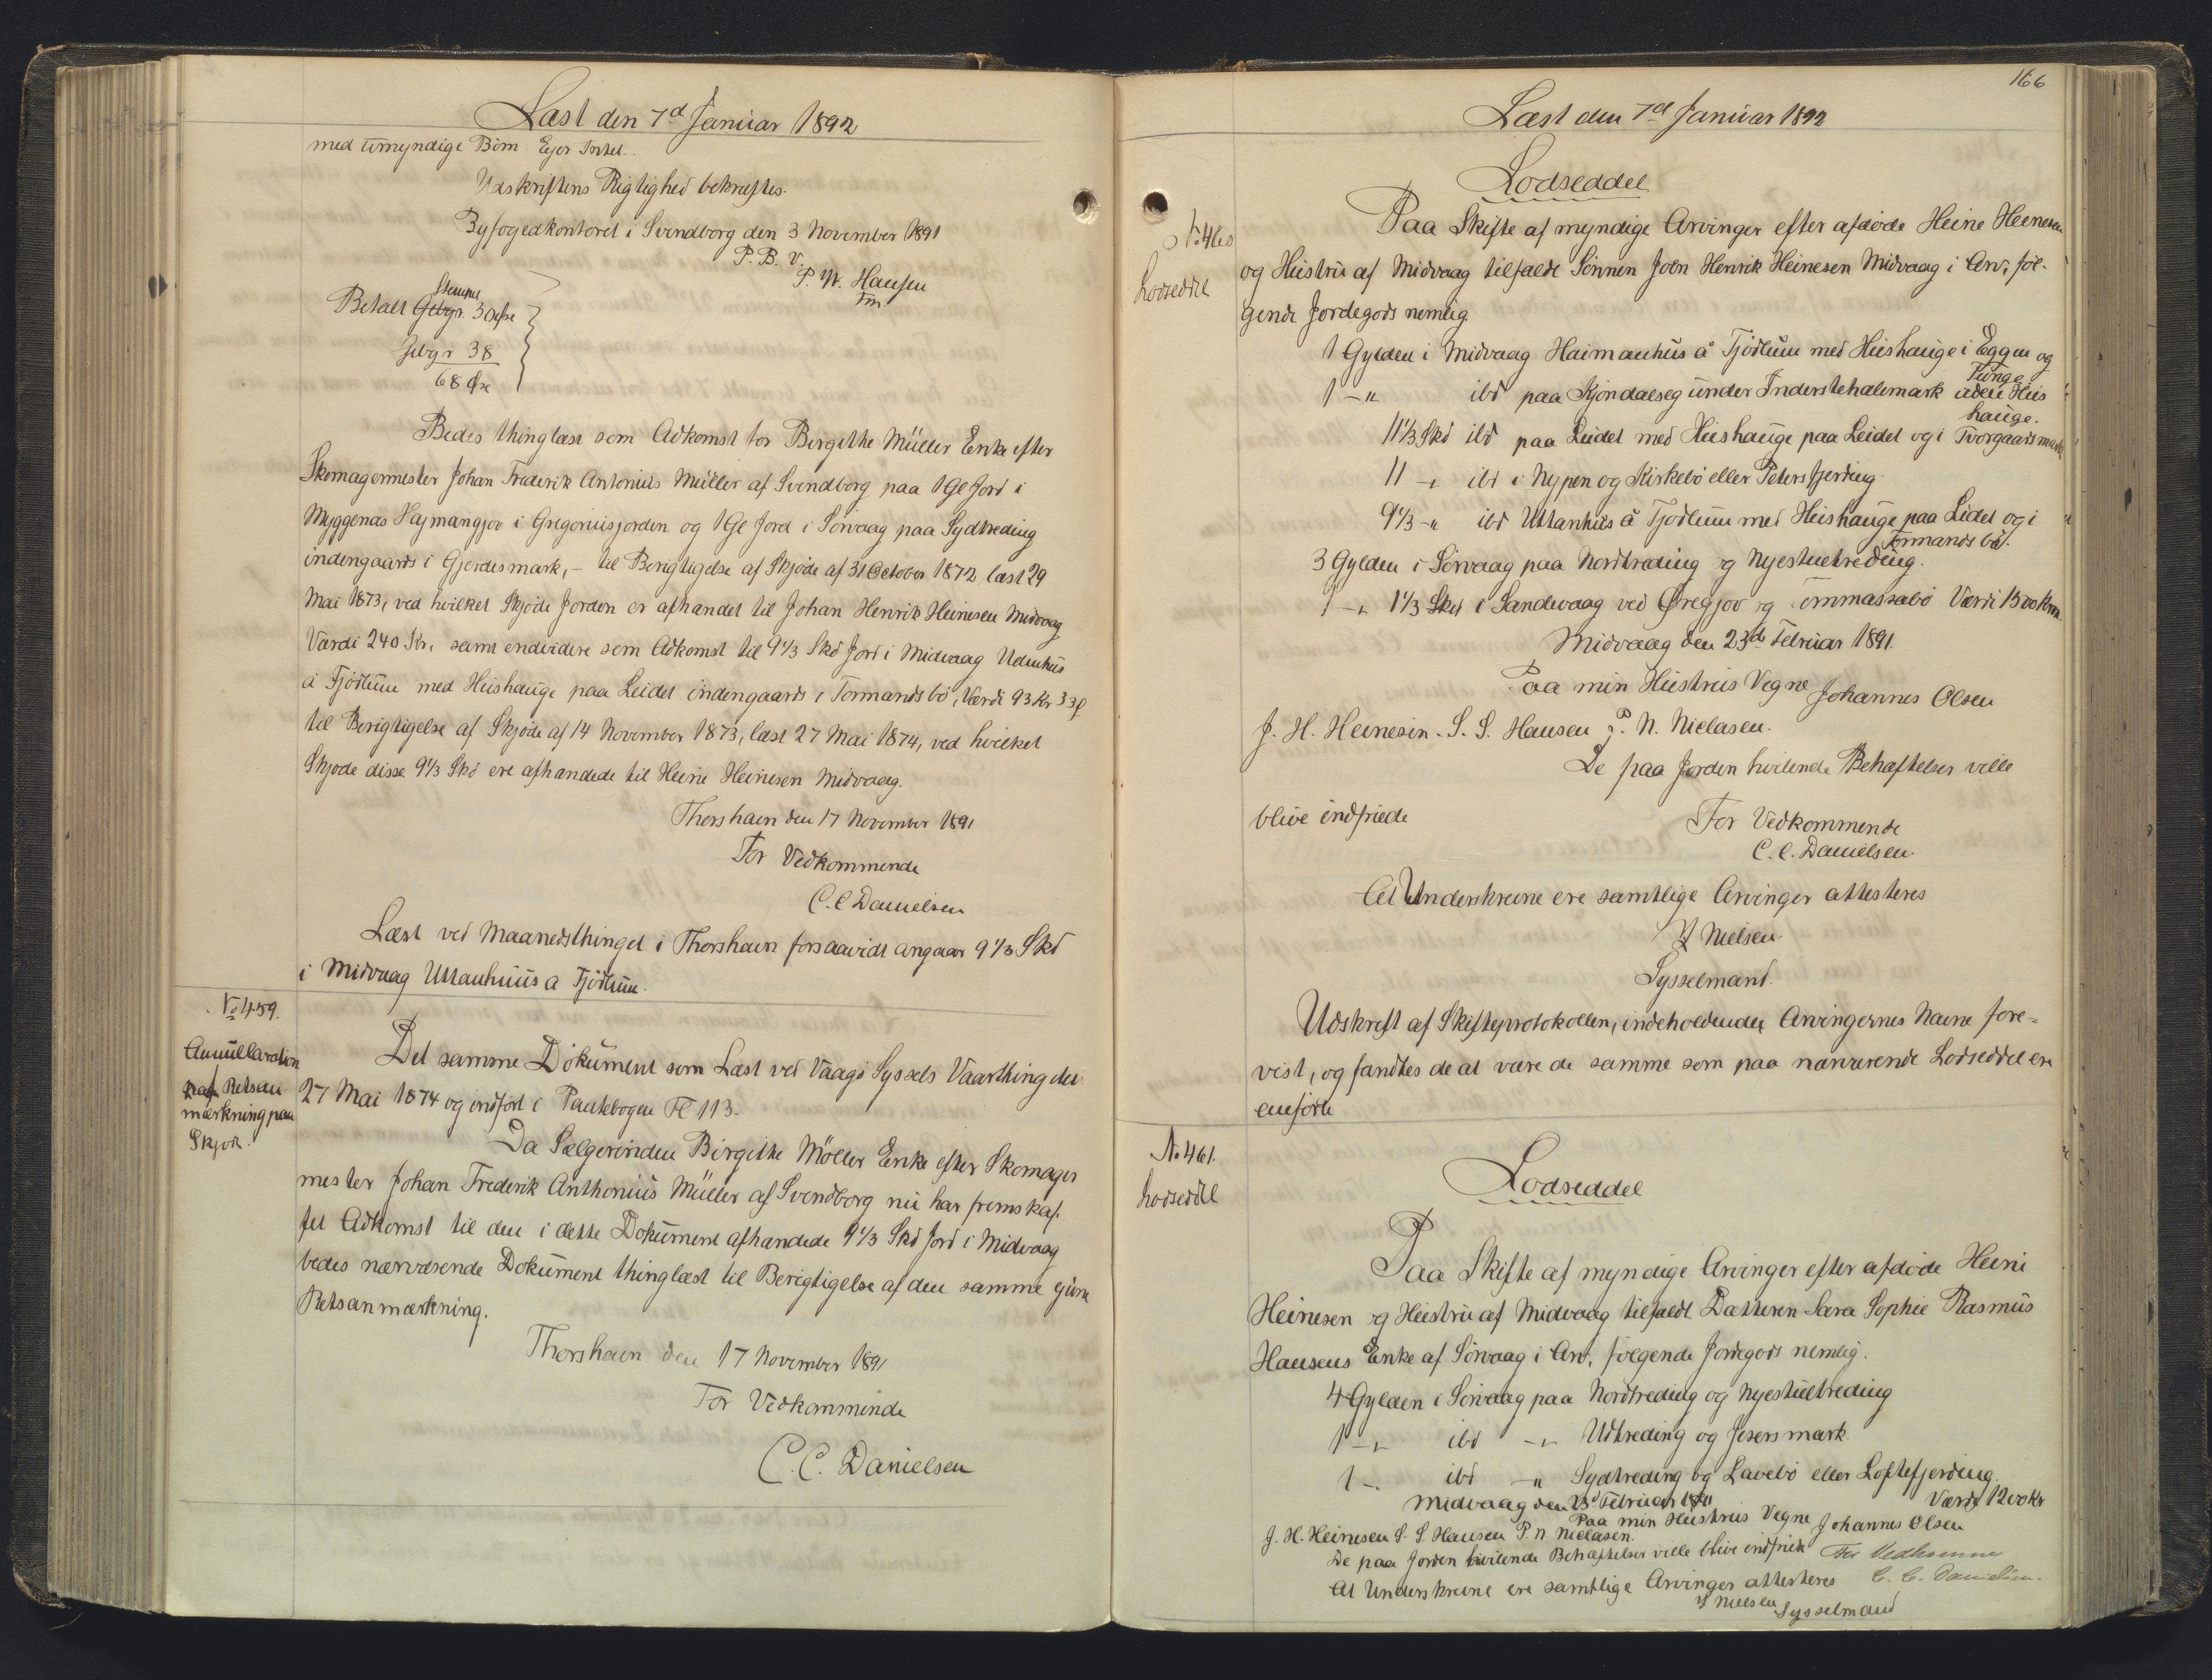 Læst den 7d Januar 1892
med umyndige Børn Ejer Intet.
Udskriftens Rigtighed bekræftes.
Byfogedkontoret i Svendborg den 3 November 1891
P. B. V.
P. W. Hansen
Fm
Stempel
Betalt Gebyr. 30 Øre
Gebyr 38
68 Øre
Bedes thinglæst som Adkomst for Birgithe Müller Enke efter
Skomagermester Johan Frederik Antonius Müller af Svendborg paa 1 Gl Jord i
Myggenæs Hajmangjov i Gregoriusjorden og 1 Gl Jord i Sørvaag paa Sydtreding
indengaards i Gjerdesmark, - til Berigtigelse af Skjøde af 31 October 1872 læst 29
Mai 1873, ved hvilket Skjøde Jorden er afhændet til Johan Henrik Heinesen Midvaag
Værdi 240 Kr, samt endvidere som Adkomst til 9 1/3 Skd Jord i Midvaag Udenhus
á Fjødlum med Hushauge paa Leidet indengaards i Tormands bø, Værdi 93 Kr 33
til Berigtigelse af Skjøde af 14 November 1873, læst 27 Mai 1874, ved hvilket
Skjøde disse 9 1/3 Skd ere afhændede til Heine Heinesen Midvaag.
Thorshavn den 17 November 1891
For Vedkommende
C. C Danielsen
Læst ved Maanedsthinget i Thorshavn forsaavidt angaar 9 1/3 Skd
i Midvaag Uttanhuus a Fjødlum.
No 459.
Annullaration
af Retsan
mærkning paa
Skjøde.
Det samme Dokument som Læst ved Vaagø Syssels Vaarthing den
27 Mai 1874 og indført i Pantebogen Fl 113.
Da Sælgerinden Birgithe Møller Enke efter Skomager
mester Johan Frederik Anthonius Müller af Svendborg nu har fremskaf-
fet Adkomst til den i dette Dokument afhændede 9 1/3 Skd Jord i Midvaag
bedes nærværende Dokument thinglæst til Berigtigelse af den samme givne
Retsanmærkning.
Thorshavn den 17 November 1891
For Vedkommende
C. C. Danielsen
166
Læst den 7d Januar 1892
Lodseddel
No 460
Lodseddel
Paa Skifte af myndige Arvinger efter afdøde Heine Heinesen
og Hustru af Midvaag tilfaldt Sønnen Joen Henrik Heinesen Midvaag i Arv, føl-
gende Jordegods nemlig
1 Gylden i Midvaag Haimanhus á Fjødlum med Hushauge i Eggen og
Tunge
1 -"- ibd paa Kjøndalseg under Inderstehalemark uden Hus
hauge.
11 1/3 Skd ibd paa Leidet med Hushauge paa Leidet og i Tvørgaards mark
11 -"- ibd i Nypen og Kirkebø eller Petersfjerding.
9 1/3 -"- ibd Uttanhus á Fjødlum med Hushauge paa Lidet og i
Tormands bø.
3 Gylden i Sørvaag paa Nordtreding og Nyestuetreding.
1 -"- 1 1/3 Skd i Sandevaag ved Øregjov og Tommassabø Værdi 1500 Kron.
Midvaag den 23de Februar 1891.
Paa min Hustrus Vegne Johannes Olsen
J. H. Heinesen. S. S. Hansen P. N. Nielasen.
De paa Jorden hvilende Behæftelser ville
blive indfriede
For Vedkommende
C. C. Danielsen.
At Underskrevne ere samtlige Arvinger attesteres
Nielsen
Sysselmand.
Udskrift af Skifteprotokollen, indeholdende Arvingernes Navne fore-
vist, og fandtes de at være de samme som paa nærværende Lodseddel ere
anførte
No 461.
Lodseddel
Lodseddel
Paa Skifte af myndige Arvinger efter afdøde Heine
Heinesen og Hustru af Midvaag tilfaldt Datteren Sara Sophie Rasmus
Hansens Enke af Sørvaag i Arv, følgende Jordegods nemlig.
4 Gylden i Sørvaag paa Nordtreding og Nyestuetreding
1 -"- ibd -"- Udtreding og Jesers mark
1 -"- ibd -"- Sydtreding og Lavebø eller Loftefjerding.
Værdi 1200 Kr
Midvaag den 23d Februar 1891
Paa min Hustrus Vegne Johannes Olsen
J. H. Heinesen S. S. Hansen P. N Nielasen.
De paa Jorden hvilende Behæftelser ville blive indfriede For Vedkomme
C. C. Danielsen.
At Underskrevne ere samtlige Arvinger attesteres
Nielsen Sysselmand